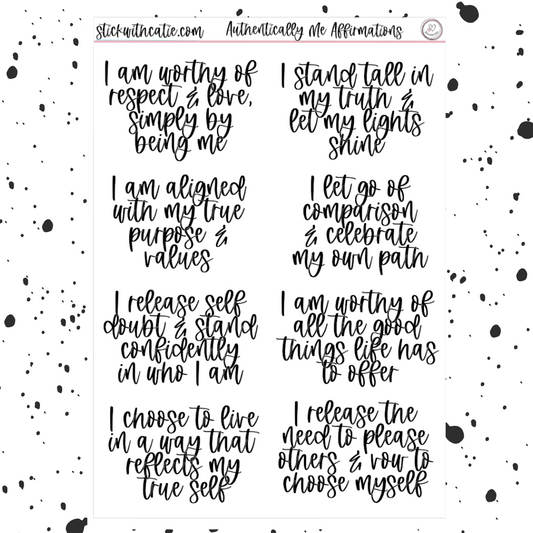 stickwithcatie.com Authentically Me Affirmations
I am worthy of
respect & love,
simply by
being me
I stand tall in
my truth &
let my lights
shine
I am aligned
with my true
purpose &
values
I let go of
comparison
& celebrate
my own path
I release self
doubt & stand
confidently
in who I am
I am worthy of
all the good
things life has
to offer
I choose to live
in a way that
reflects my
true self
I release the
need to please
others & vow to
choose myself